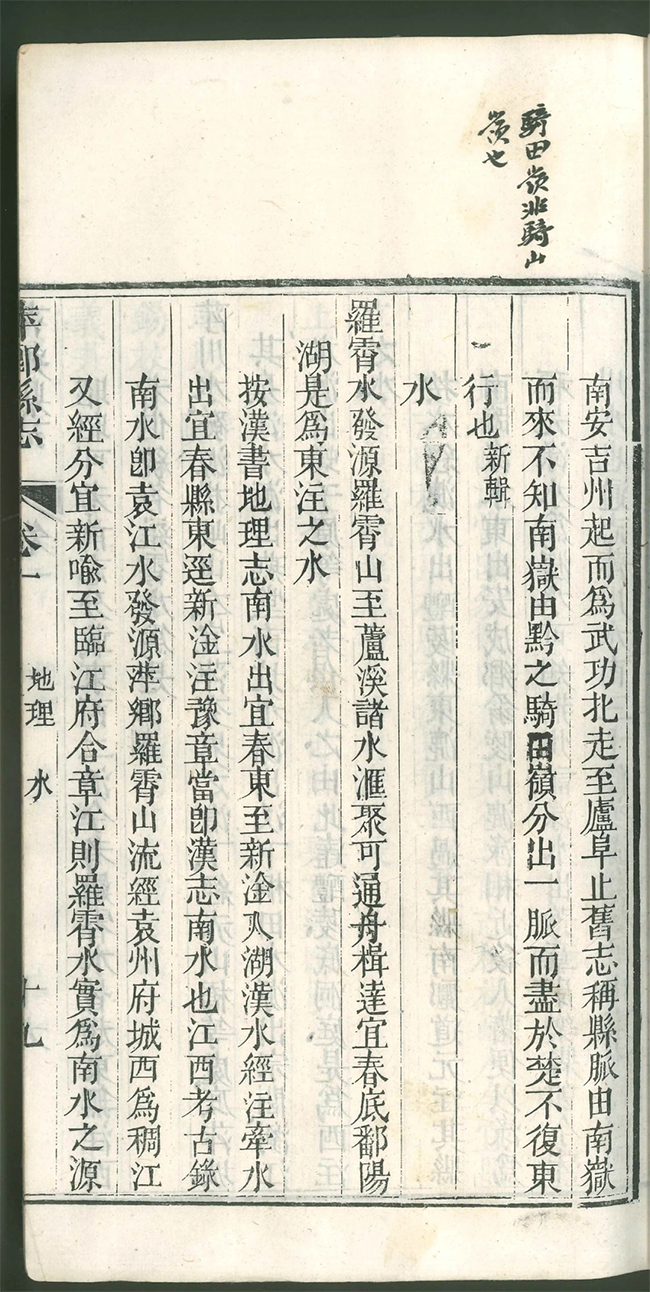 騎田嶺非騎山
嶺也
南安吉州起而爲武功北走至廬阜止舊志稱縣脈由南嶽
而來不知南嶽由黔之騎田嶺分出一脈而盡於楚不復東
行也新輯
水
羅霄水發源羅霄山至蘆溪諸水滙聚可通舟楫達宜春底鄱陽
湖是爲東注之水
按漢書地理志南水出宜春東至新淦入湖漢水經注牽水
出宜春縣東逕新淦注豫章當卽漢志南水也江西考古錄
南水卽袁江水發源萍鄉羅霄山流經袁州府城西爲稠江
又經分宜新喩至臨江府合章江則羅霄水實爲南水之源
萍鄉縣志 卷一 地理 水 十九